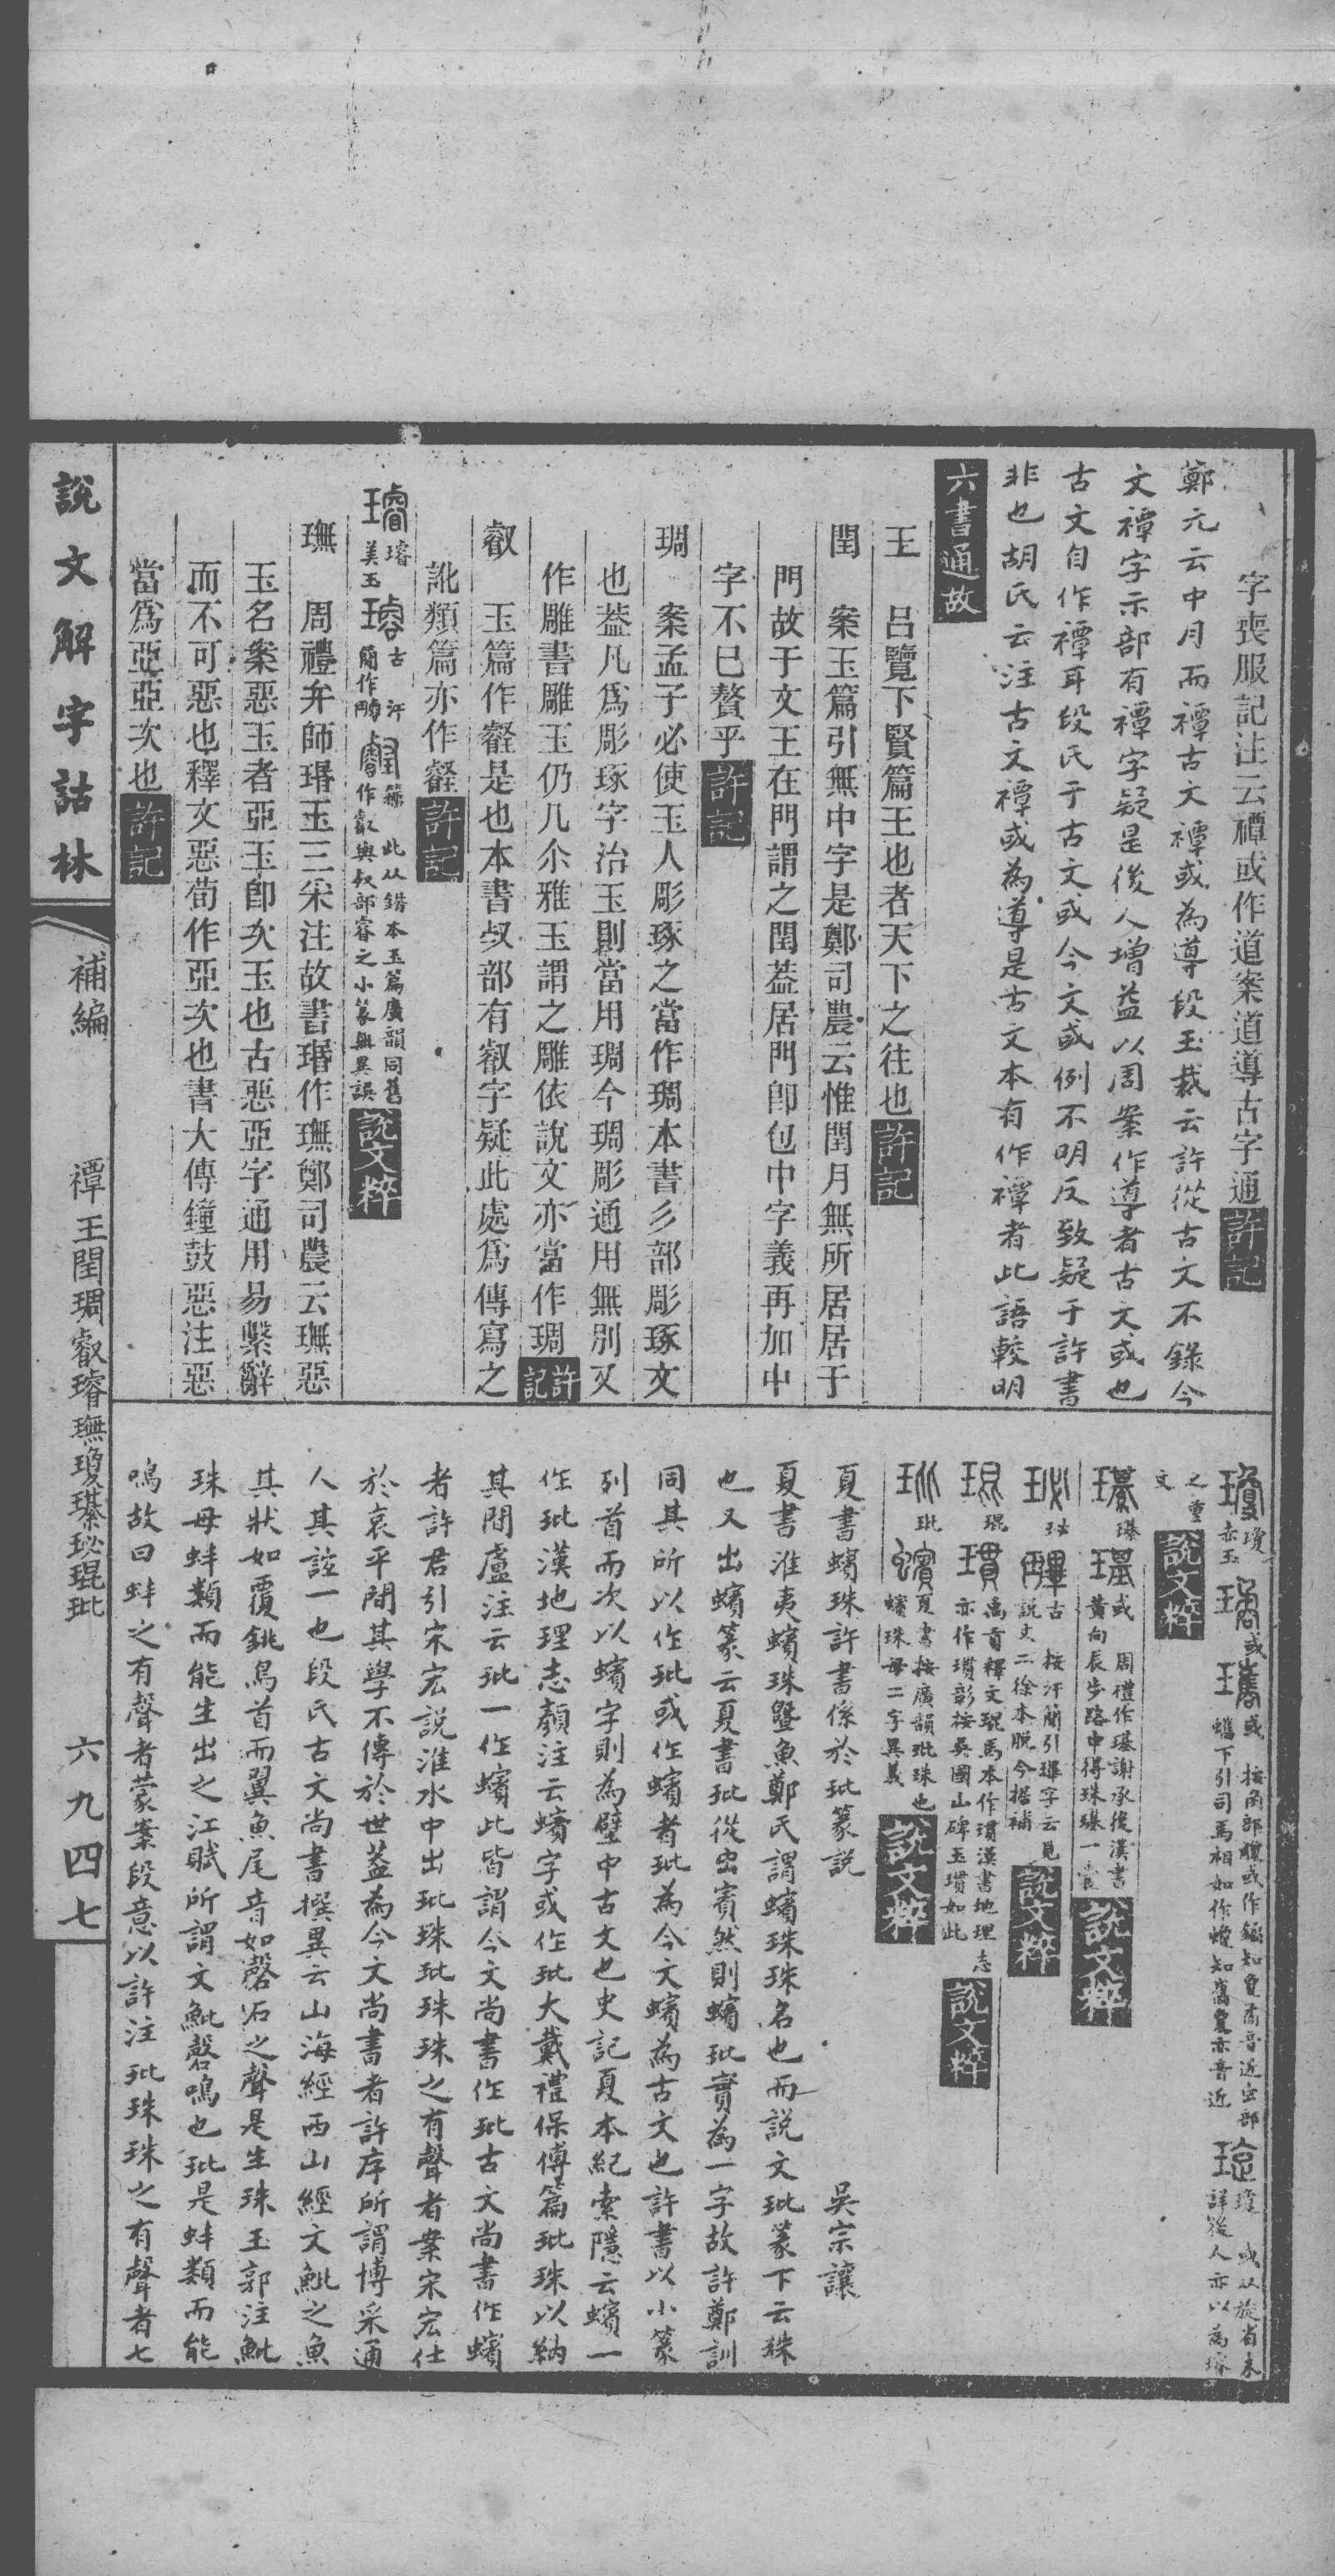 字喪服記注云禫或作道案道導古字通許記
鄭元云中月而禫古文禫或為導段玉裁云許從古文不錄今
文禫字示部有禫字疑是後人增益以周案作導者古文或也
古文自作禫耳段氏于古文或今文或例不明反致疑于許書
非也胡氏云注古文禫或為導是古文本有作禫者此語較明
六書通故
王 呂覽下賢篇王也者天下之往也許記
閏 案玉篇引無中字是鄭司農云惟閏月無所居居于
門故于文王在門謂之閏葢居門卽包中字義再加中
字不已贅乎許記
琱 案孟子必使玉人彫琢之當作琱本書彡部彫琢文
也葢凡爲彫琢字治玉則當用琱今琱彫通用無別又
作雕書雕玉仍几尒雅玉謂之雕依說文亦當作琱許記
叡 玉篇作壡是也本書𣦼部有叡字疑此處爲傳寫之
訛類篇亦作壡許記
璿 美玉 古 汗簡作 籀 此从鍇本玉篇廣韻同舊作叡與𣦼部睿之小篆無異誤說文粹
璑 周禮弁師瑉玉三采注故書瑉作璑鄭司農云璑惡
玉名案惡玉者亞玉卽次玉也古惡亞字通用易繫辭
而不可惡也釋文惡荀作亞次也書大傳鐘鼓惡注惡
當爲亞亞次也許記
瓊 赤玉 或 或 按角部觼或作鐍知敻矞音近虫部蠵下引司馬相如作蠵知巂敻亦音近 瓊 或从旋省未詳後人亦以為璿
之重文說文粹
璂 或 周禮作璂謝承後漢書黃向辰步路中得珠璣一囊說文粹
珌 古 按汗簡引㻫字云見說文二徐本脫今据補說文粹
琨 瑻 禹貢釋文琨馬本作瑻漢書地理志亦作瑻彭按吳國山碑玉瑻如此說文粹
玭 蠙 夏書按廣韻玭珠也蠙珠母二字異義說文粹
夏書蠙珠許書係於玭篆說 吳宗讓
夏書淮夷蠙珠曁魚鄭氏謂蠙珠珠名也而說文玭篆下云珠
也又出蠙篆云夏書玭從虫賓然則蠙玭實為一字故許鄭訓
同其所以作玭或作蠙者玭為今文蠙為古文也許書以小篆
列首而次以蠙字則為壁中古文也史記夏本紀索隱云蠙一
作玭漢地理志顏注云蠙字或作玭大戴禮保傅篇玭珠以納
其間盧注云玭一作蠙此皆謂今文尚書作玭古文尚書作蠙
者許君引宋宏說淮水中出玭珠玭珠珠之有聲者案宋宏仕
於哀平間其學不傳於世葢為今文尚書者許序所謂博采通
人其詮一也段氏古文尚書撰異云山海經西山經文魮之魚
其狀如覆銚鳥首而翼魚尾音如磬石之聲是生珠玉郭注魮
珠母蚌類而能生出之江賦所謂文魮磬鳴也玭是蚌類而能
鳴故曰蚌之有聲者蒙案段意以許注玭珠珠之有聲者七
說文解字詁林
補編
禫王閏琱叡璿璑瓊璂珌琨玭
六九四七